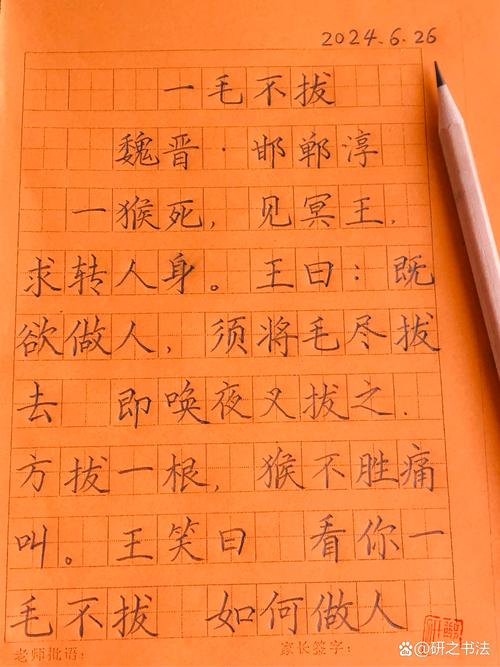 2024.6.26
一毛不拔
魏晋·邯郸淳
一猴死，见冥王.
求转人身。王曰：既
欲做人，须将毛尽拔
去 即唤夜叉拔之.
方拔一根，猴不胜痛
叫。王笑曰 看你一
毛不拔 如何做人
老师批语： 家长签字：
研之书法